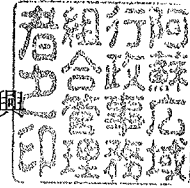 阿蘇広域
行政事務
組合管理
者之印